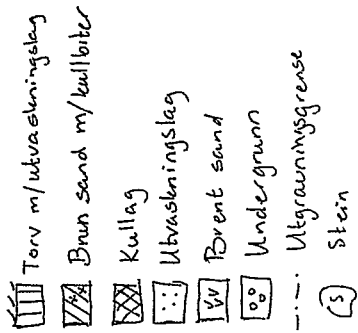 Torv m/utvaskningslag
Brun sand m/kullbiter
Kullag
Utvaskningslag
Brent sand
Undergrunn
Utgravningsgrense
S Stein